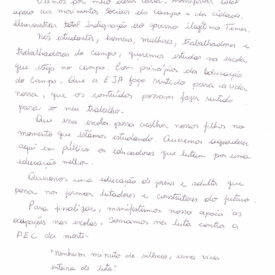 Viemos por meio dessa carta, manifestar total
apoio aos movimentos sociais do campo e da cidade,
demonstrar total indignação ao governo ilegítimo Temer.
Nós estudantes, homens, mulheres, trabalhadores e
trabalhadoras do campo, queremos estudar na escola
que esteja no campo. Com princípios da Educação
do Campo. Que a EJA faça sentido para a vida
nossa, que os conteúdos possam fazer sentido
para o meu trabalho.
Que essa escola possa acolher nossos filhos no
momento que estamos estudando. Queremos agradecer
aqui em público os educadores que lutam por uma
educação melhor.
Queremos uma educação de jovens e adultos que
possa nos formar lutadores e construtores do futuro.
Para finalizar, manifestamos nosso apoio às
ocupações nas escolas. Somamos na luta contra a
PEC da morte.
"Nenhum minuto de silêncio, uma vida
inteira de luta"